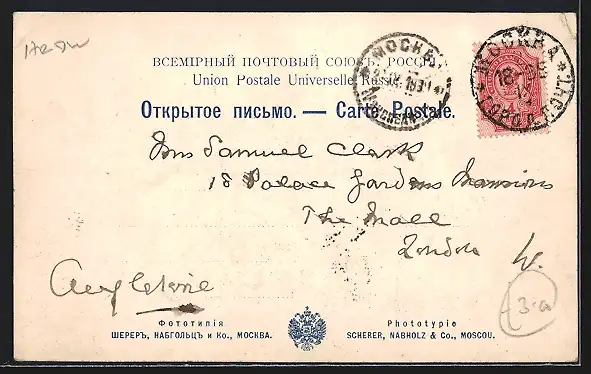 ВСЕМІРНЫЙ ПОЧТОВЫЙ СОЮЗЪ. РОССІЯ.
Union Postale Universelle. Russie.
МОСКВА
МОСКВА
18
ГОРОД.
Открытое письмо. — Carte Postale.
Mrs Samuel Clark
18 Palace Gardens Mansions
The Mall
London W.
Angleterre
3-a
Фототипія
ШЕРЕРЪ, НАБГОЛЬЦЪ и Ко., МОСКВА.
Phototypie
SCHERER, NABHOLZ & Co., MOSCOU.